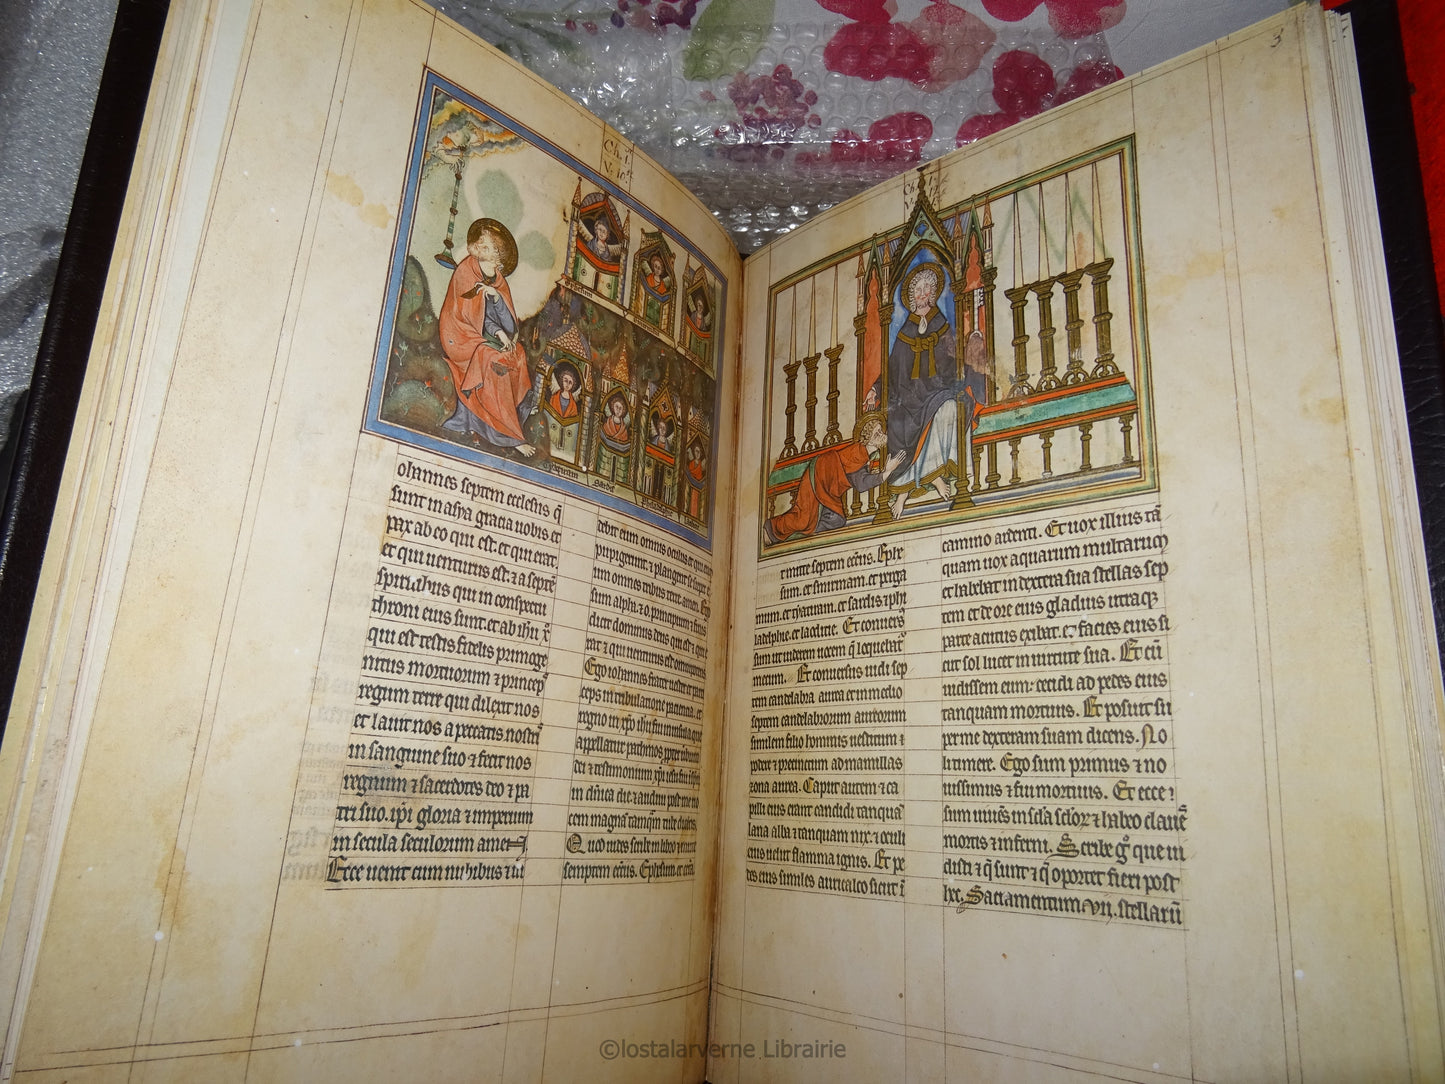 Ch. 1
V. 10
Sardis
ohannes septem ecclesiis q̄
sunt in asya gracia uobis et
pax ab eo qui est. et qui erat.
et qui uenturus est. ⁊ a septē
spiritibus qui in conspectu
throni eius sunt. et ab ihū x̄
qui est testis fidelis primoge
nitus mortuorum ⁊ princep
regum terre qui dilexit nos
et lauit nos a peccatis nostri
in sanguine suo ⁊ fecit nos
regnum ⁊ sacerdotes deo ⁊ pa
tri suo. ipi gloria ⁊ imperium
in secula seculorum amen
Ecce uenit cum nubibus ⁊ ui
debit eum omnis oculus et qui eum
pupigerunt. ⁊ plangent se super
um omnes tribus terre. amen. Ego
sum alpha. ⁊ o. principium ⁊ finis
dicit dominus deus qui est ⁊ qui
erat ⁊ qui uenturus est omnipotens
Ego iohannes frater uester et parti
ceps in tribulatione pacientia. et
regno in xp̄o ihū fui in insula que
appellatur pathmos ppter uerbum
dei ⁊ testimonium xpi iesu fui in spu
in dn̄ica die ⁊ audiui post me uo
cem magnā tanqm̄ tube dicentis.
Quod uides scribe in libro ⁊ mitte
semptem ecciis. Ephesum. et
3
Ch. 1
V. 12
t mitte septem ecciis. Ephe
sum. et smirnam. et perga
mum. et thyatiram. et sardis ⁊ phi
ladelphie. et laodicie. Et conuers
sum ut uiderem uocem q̄ loquebatr̄
mecum. Et conuersus uidi sep
tem candelabra aurea et in medio
septem candelabrorum aureorum
similem filio hominis uestitum ⁊
podere ⁊ precinctum ad mamillas
zona aurea. Caput autem ⁊ ca
pilli eius erant candidi tanquā
lana alba ⁊ tanquam nix. ⁊ oculi
eius uelut flamma ignis. Et pe
des eius similes auricalco sicut ī
camino ardenti. Et uox illius tā
quam uox aquarum multarum
et habebat in dextera sua stellas sep
tem et de ore eius gladius utraq̨
parte acutus exibat. et facies eius si
cut sol lucet in uirtute sua. Et cū
uidissem eum: cecidi ad pedes eius
tanquam mortuus. Et posuit su
per me dexteram suam dicens. No
li timere. Ego sum primus ⁊ no
uissimus ⁊ fui mortuus. Et ecce ⁊
sum uiuēs in scl̄a scl̄oꝝ ⁊ habeo clauē
mortis ⁊ inferni. Scribe g̊ que ui
disti ⁊ q̄ sunt ⁊ q̄ oportet fieri post
hec. Sacramentum vij. stellarū
©lostalarverne Librairie